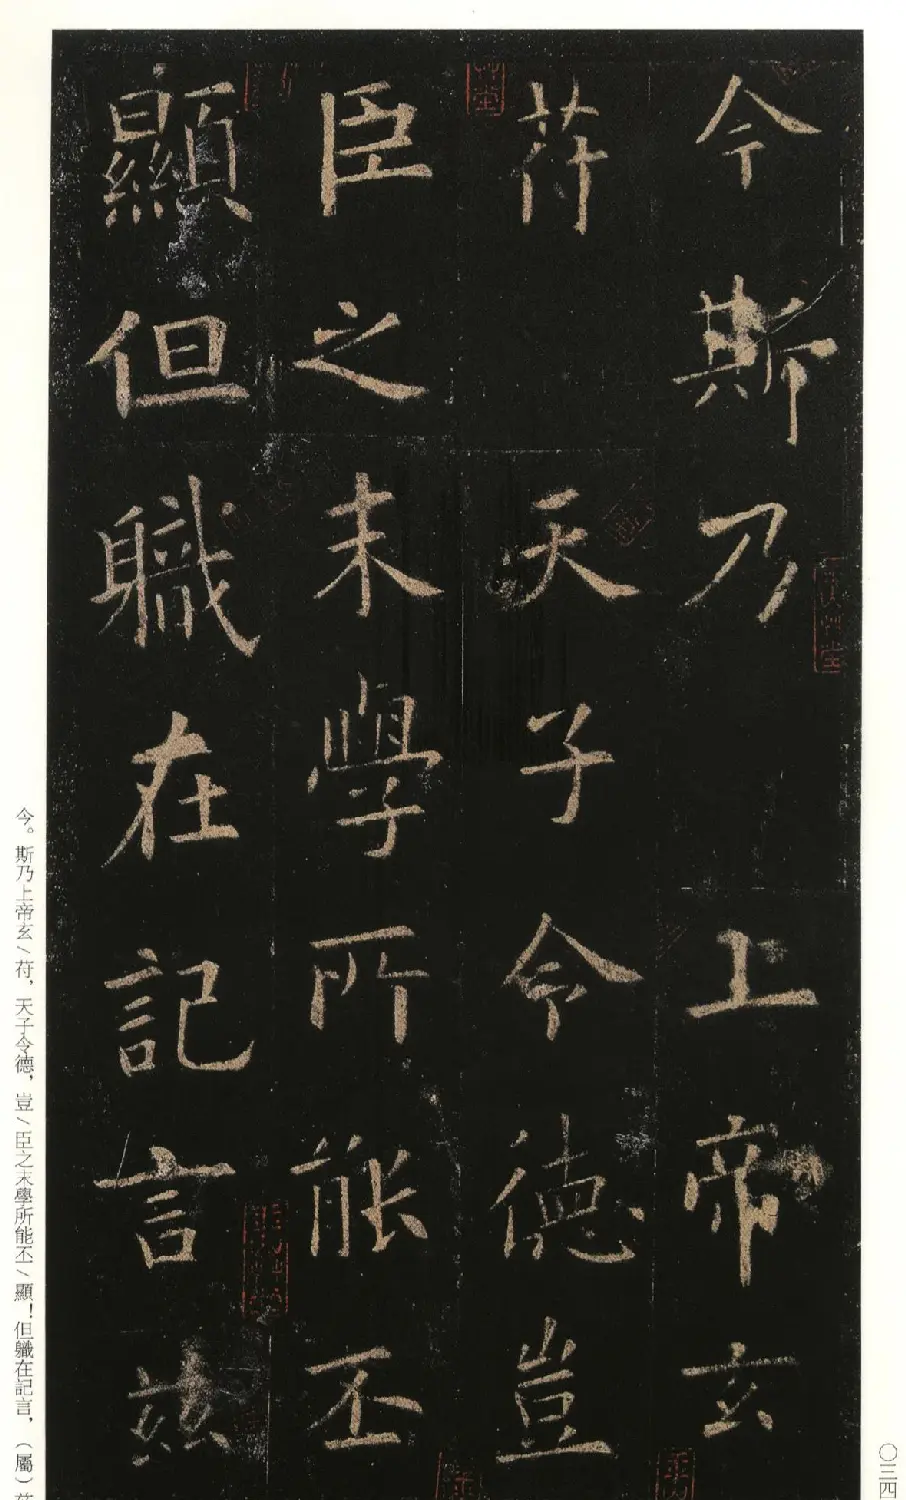 今斯乃 上帝玄
苻 天子令德豈
臣之末學所能丕
顯但軄在記言兹
今。斯乃上帝玄/苻，天子令德，豈/臣之末學所能丕/顯！但軄在記言，（屬）
〇三四